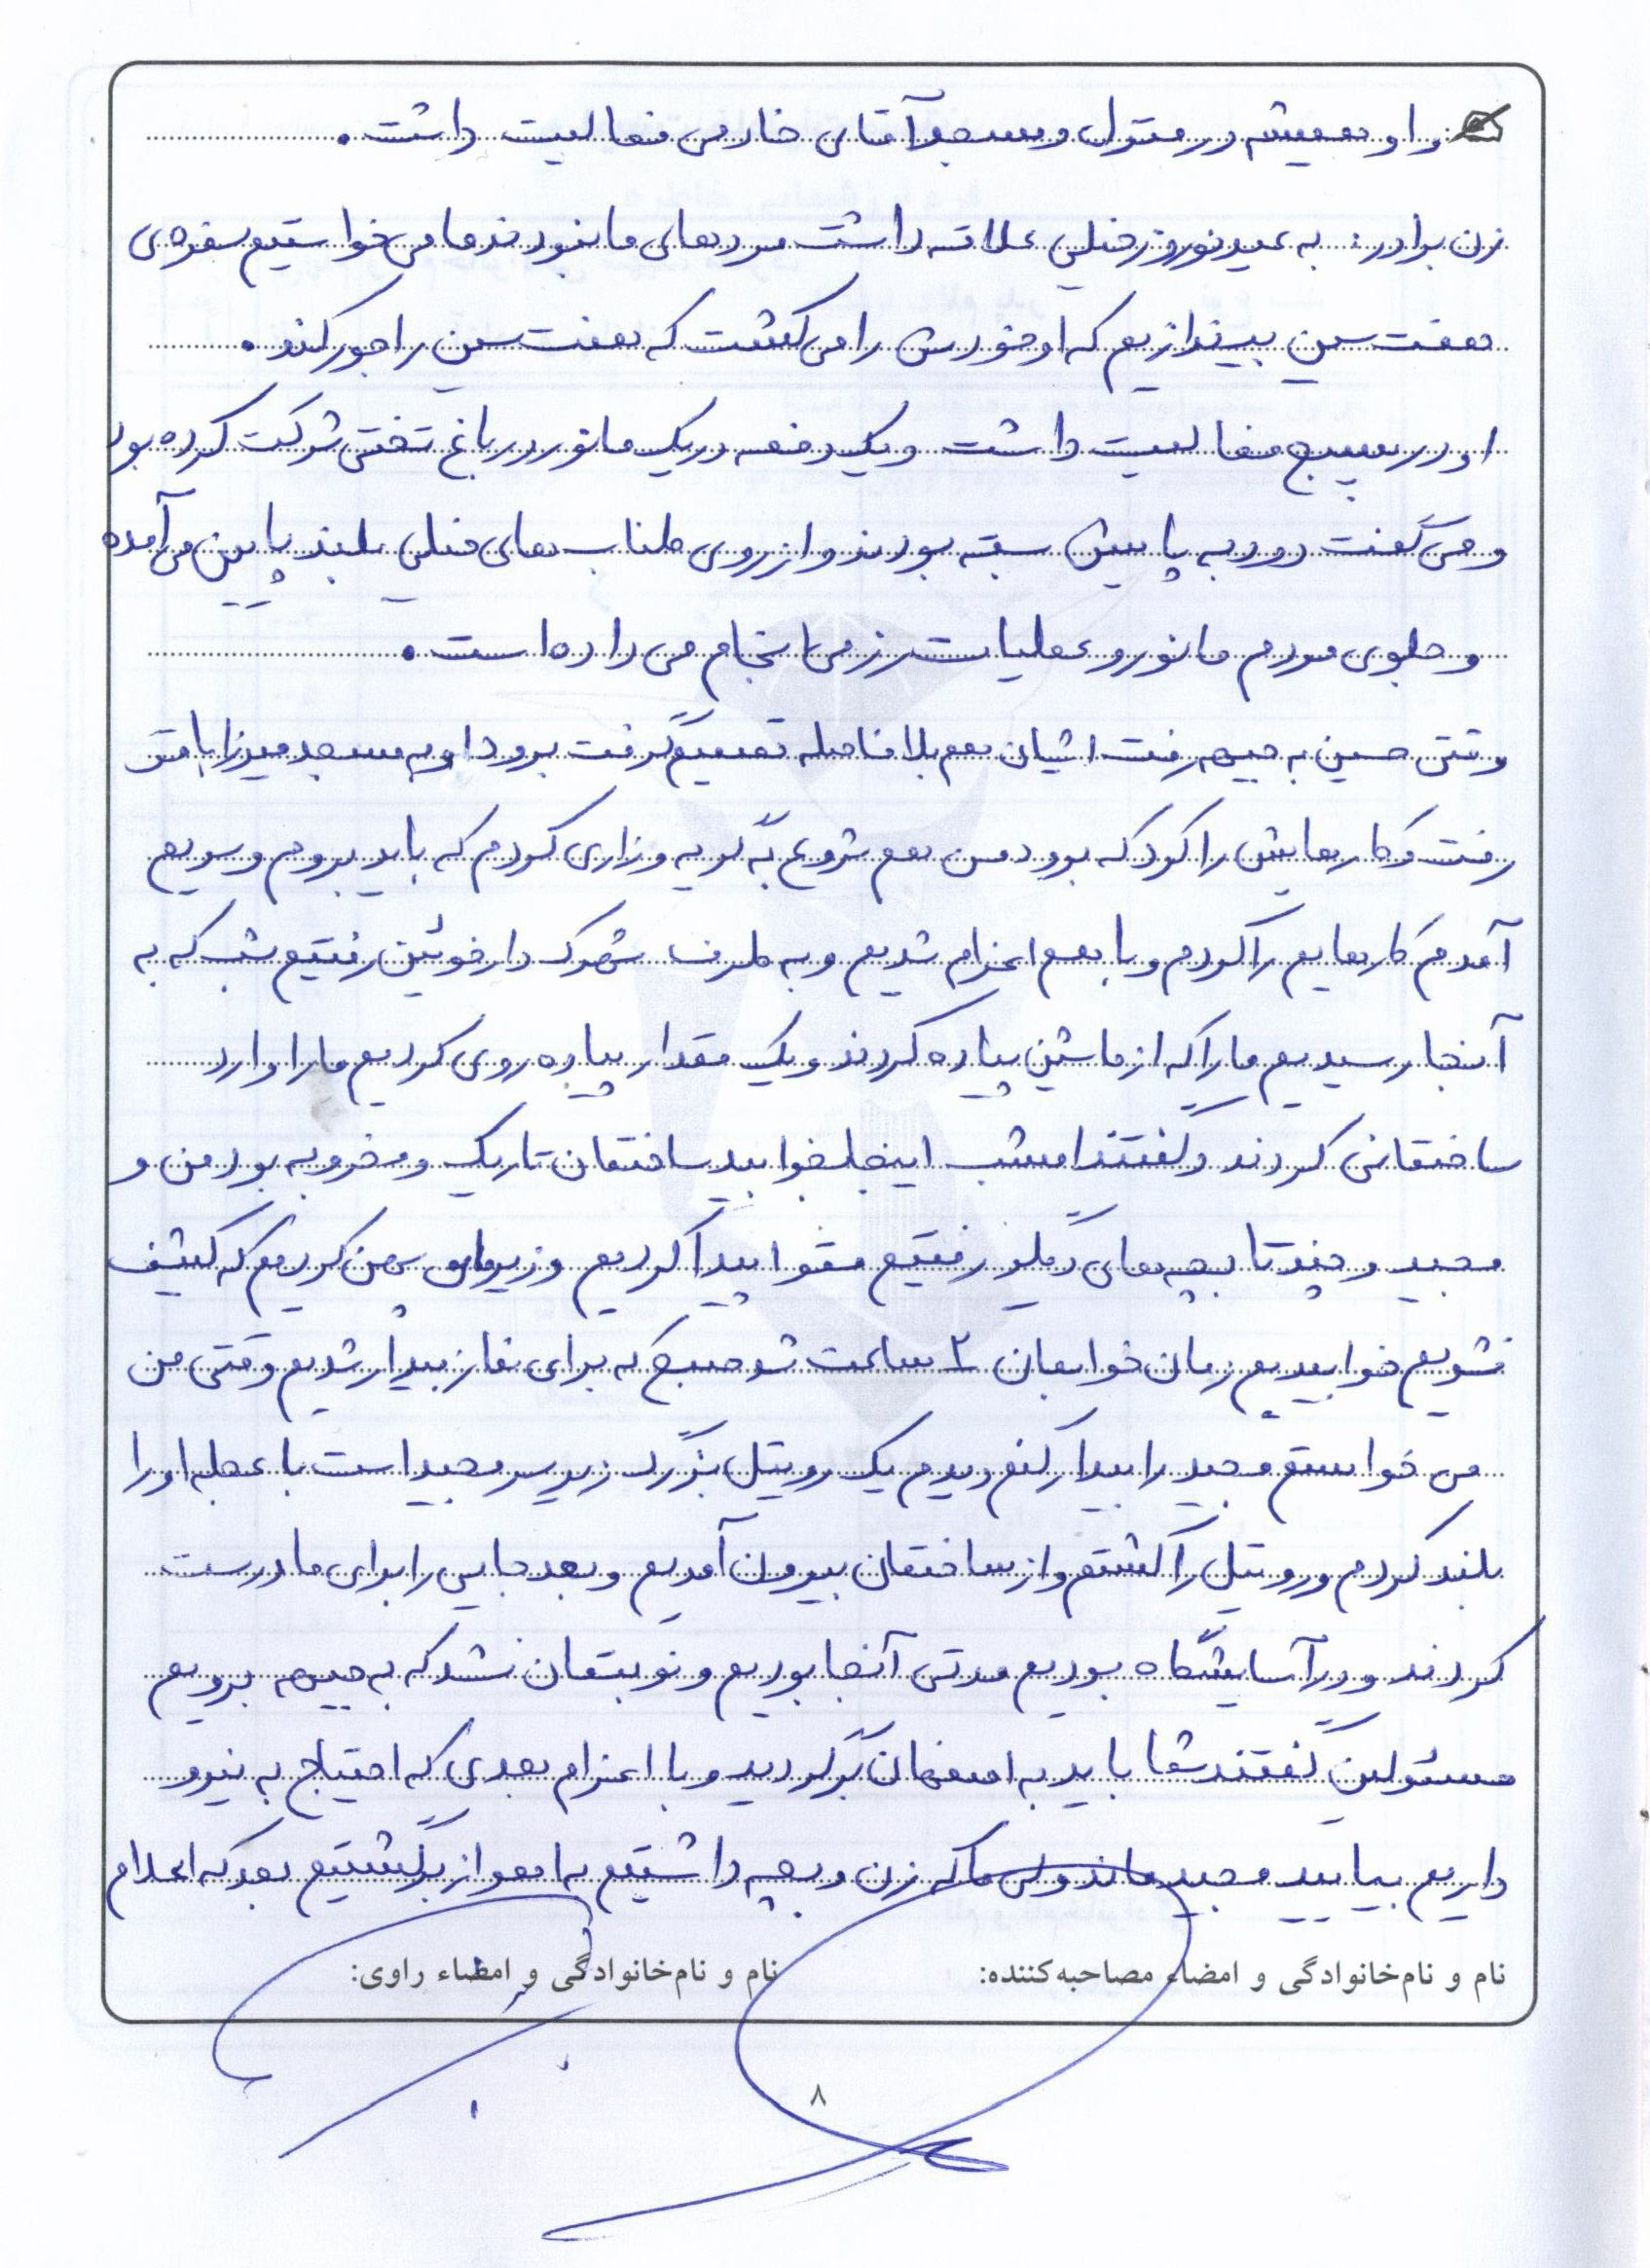 و او همیشه در منزل و مسجد آقای خادمی فعالیت داشت.
زن برادر: به عید نوروز خیلی علاقه داشت مردهای ما نبودند ما می خواستیم سفره ی
هفت سین بیندازیم که او خودش را می کشت که هفت سین را جور کند.
او در بسیج فعالیت داشت و یک دفعه در یک مانور در باغ تختی شرکت کرده بود
و می گفت دور به پایش بسته بودند و از روی طناب های خیلی بلند پایین می آمده
و جلوی مردم مانور و عملیات رزمی انجام می داده است.
وقتی حسین به جبهه رفت ایشان هم بلافاصله تصمیم گرفت برود او به مسجد میرزا باقر
رفت و کارهایش را کرد که برود من هم شروع به گریه و زاری کردم که باید بروم و سریع
آمدم کارهایم را کردم و با هم اعزام شدیم و به طرف شهرک دارخوئین رفتیم شب که به
آنجا رسیدیم ما را که از ماشین پیاده کردند و یک مقدار پیاده روی کردیم ما را وارد
ساختمانی کردند و گفتند امشب اینجا بخوابید ساختمان تاریک و مخروبه بود من و
مجید و چند تا بچه های دیگر رفتیم مقوا پیدا کردیم و زیرمان پهن کردیم که کثیف
نشویم خوابیدیم زمان خوابمان ۲ ساعت شد صبح که برای نماز بیدار شدیم وقتی من
می خواستم مجید را بیدار کنم دیدم یک رویتل بزرگ زیر سر مجید است با عجله او را
بلند کردم و رویتل را کشتم و از ساختمان بیرون آمدیم و بعد جایی را برای ما درست
کردند و در آسایشگاه بودیم مدتی آنجا بودیم و نوبتمان نشد که به جبهه برویم
مسئولین گفتند شما باید به اصفهان برگردید و با اعزام بعدی که احتیاج به نیرو
داریم بیایید مجید ماند ولی ما که زن و بچه داشتیم به اهواز برگشتیم بعد که اعلام
نام و نام‌خانوادگی و امضاء مصاحبه‌کننده: نام و نام‌خانوادگی و امضاء راوی:
۸